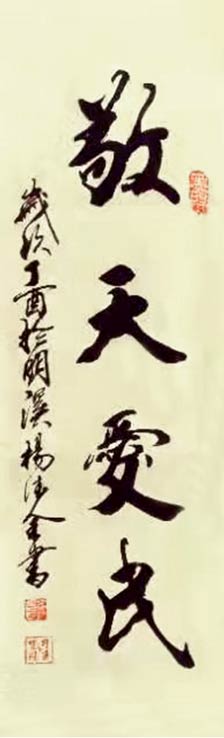 敬天愛民
歲次丁酉於明溪楊沛金書